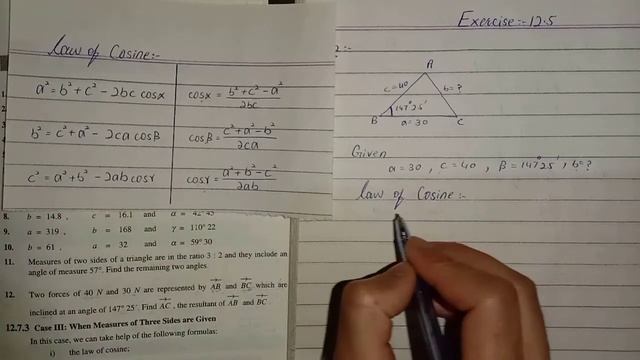 Law of Cosine:-
a² = b² + c² - 2bc cosα
cosα = b² + c² - a² / 2bc
b² = c² + a² - 2ca cosβ
cosβ = c² + a² - b² / 2ca
c² = a² + b² - 2ab cosγ
cosγ = a² + b² - c² / 2ab
8. b = 14.8 , c = 16.1 and α = 42° 45'
9. a = 319 , b = 168 and γ = 110° 22'
10. b = 61 , a = 32 and α = 59° 30'
11. Measures of two sides of a triangle are in the ratio 3 : 2 and they include an
angle of measure 57°. Find the remaining two angles.
12. Two forces of 40 N and 30 N are represented by AB and BC which are
inclined at an angle of 147° 25'. Find AC , the resultant of AB and BC .
12.7.3 Case III: When Measures of Three Sides are Given
In this case, we can take help of the following formulas:
i) the law of cosine;
Exercise:- 12.5
2:-
A
c=40
b=?
147° 25'
B
a=30
C
Given
a = 30 , c = 40 , β = 147° 25' , b = ?
Law of Cosine:-